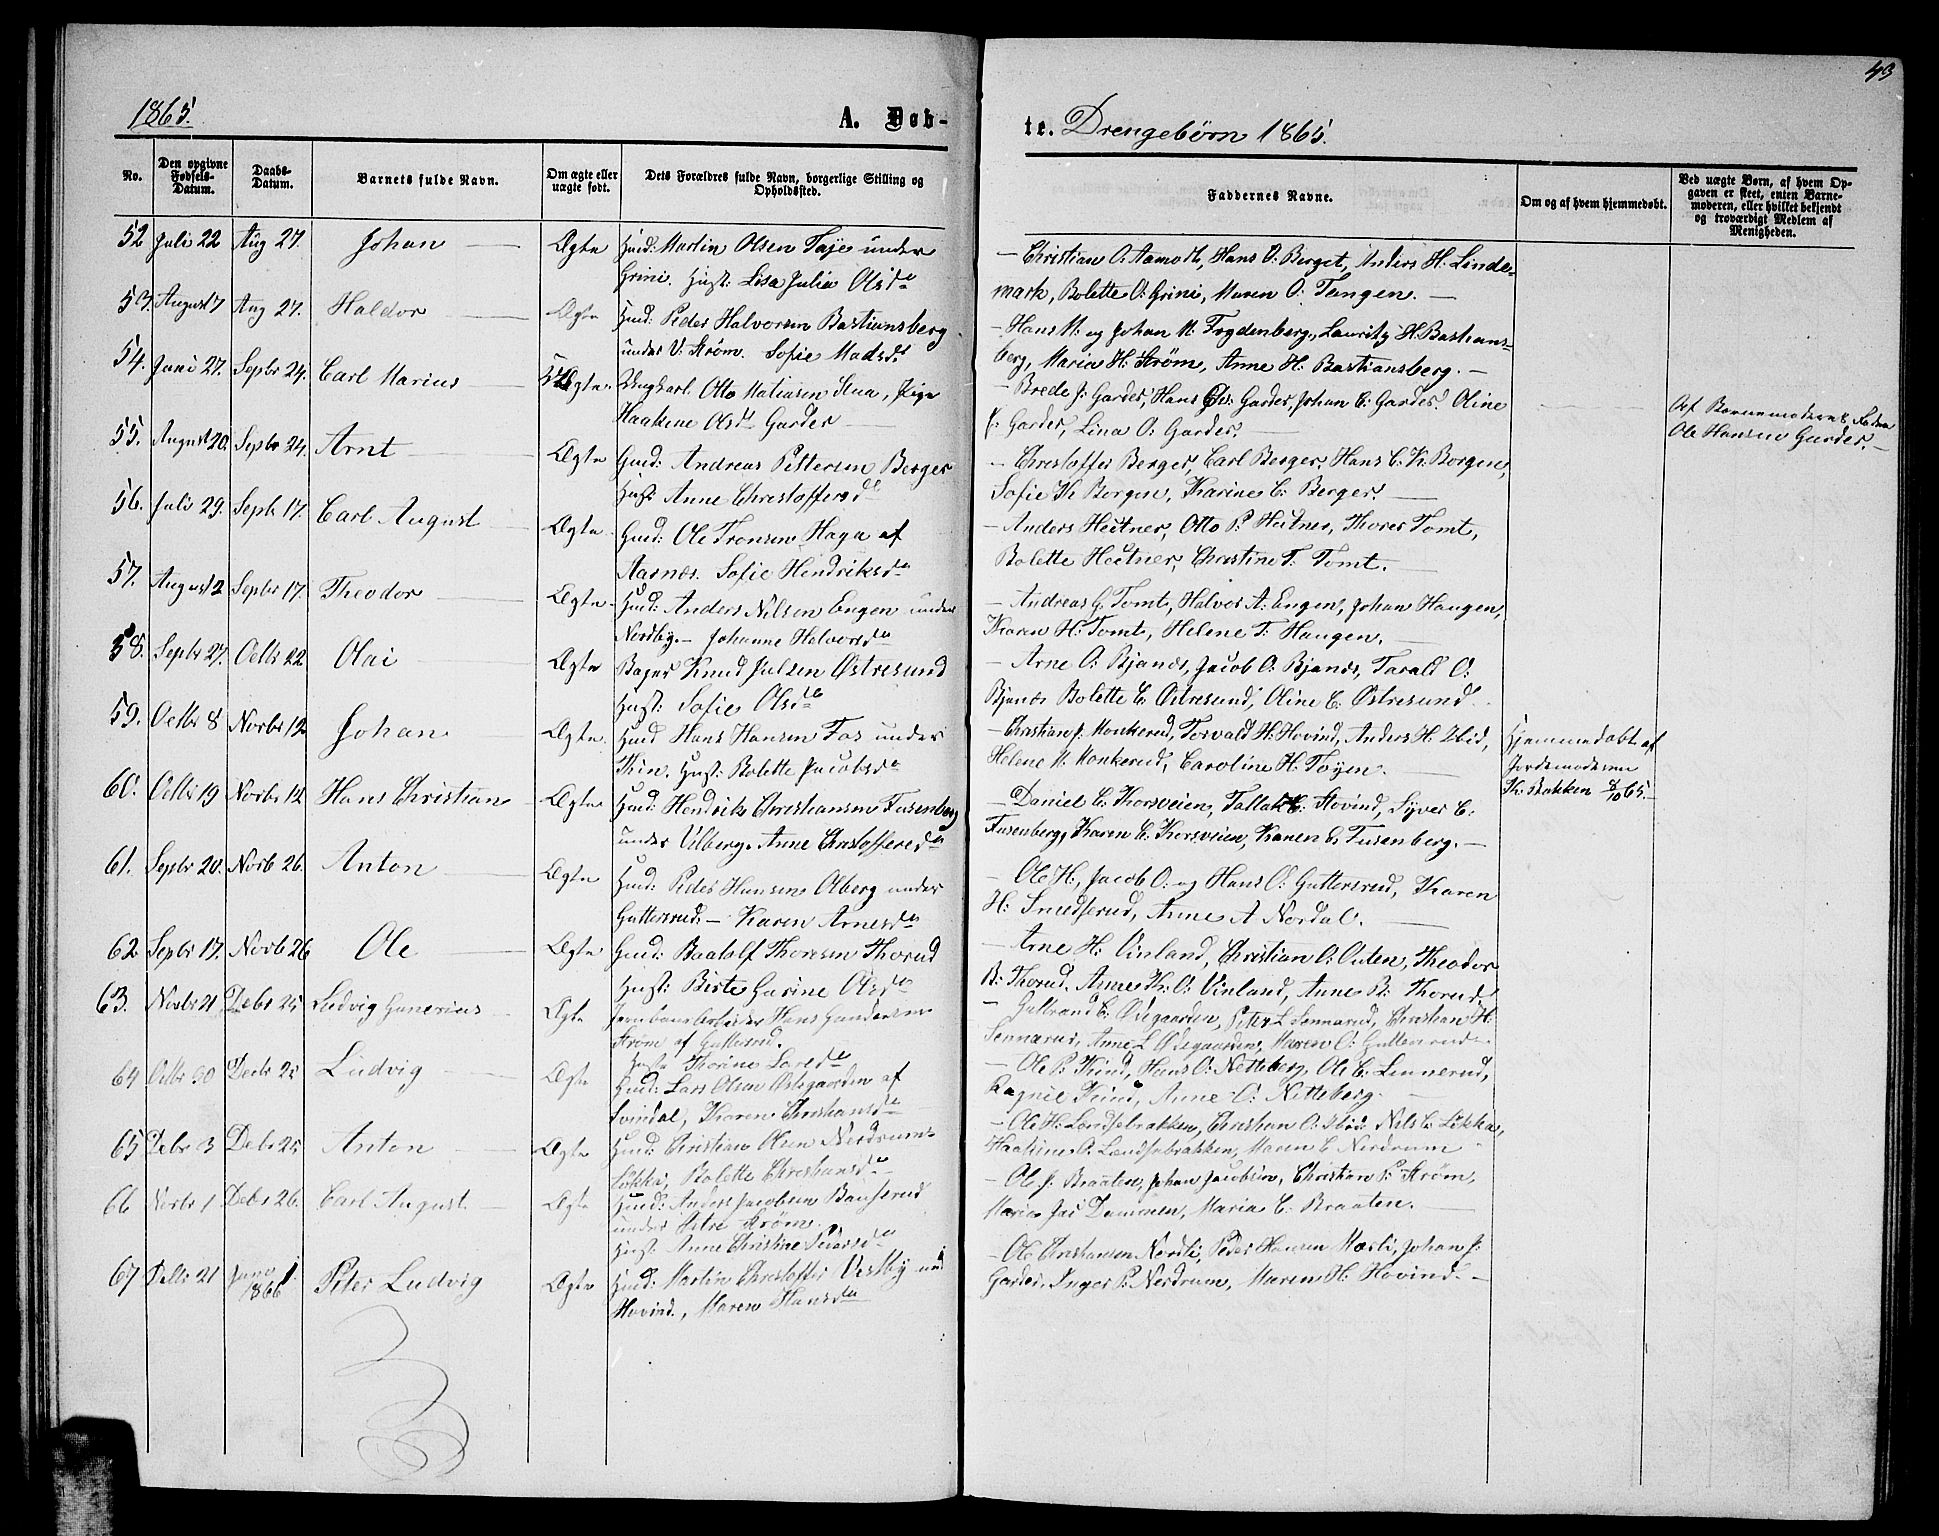 43
1865.
A. Døb-
te. Drengebørn 1865.
No.
Den opgivne Fødsels-Datum.
Daabs-Datum.
Barnets fulde Navn.
Om ægte eller uægte født.
Dets Forældres fulde Navn, borgerlige Stilling og Opholdssted.
Faddernes Navne.
Om og af hvem hjemmedøbt.
Ved uægte Børn, af hvem Opgaven er skeet, enten Barnemoderen, eller hvilket bekjendt og troværdigt Medlem af Menigheden.
52 Juli 22 Aug 27. Johan Ægte Huusm: Martin Olsen Taje under
Grini. Hust: Lisa Julia Olsd.
— Christian O: Aamodt, Hans O: Berget, Anders H: Linde-
mark, Bolette O: Grini, Maren O: Tangen. —
53. August 7 Aug 27. Haldor Ægte Huusm: Peder Halvorsen Bastiansberg
under V: Strøm. Sofie Madsd.
— Hans M: og Johan M: Frydenberg, Lauritz H: Bastians-
berg, Maria H: Strøm, Anne H: Bastiansberg. —
54. Juni 27. Septbr 24. Carl Marius UÆgte. Ungkarl Otto Matiasen Stua, Pige
Haakene Olsd. Garder
— Brede J: Garder, Hans Ols: Garder, Johan C: Garder. Oline
J: Garder, Lina O: Garder. —
Af Barnemoderens Fader
Ole Hansen Garder. —
55. August 20. Septbr 24. Arnt Ægte Huusm: Andreas Pettersen Berger
Hust: Anne Christoffersd.
— Christoffer Berger, Carl Berger, Hans C. K. Borgen,
Sofie K Borgen, Karine C: Berger. —
56. Juli 29. Septb 17. Carl August Ægte. Huusm: Ole Tronsen Haga af
Aasnæs. Sofie Hendriksd.
— Anders Heitner, Otto P: Heitner, Thorer Tomt,
Bolette Heitner, Christine T. Tomt. —
57. August 2 Septbr 17. Theodor Ægte Huusm: Anders Nilsen Engen under
Nordby. — Johanne Halvorsd.
— Andreas G. Tomt, Halvor A: Engen, Johan Haugen,
Karen H: Tomt, Helene T: Haugen. —
58. Septbr 27. Octbr 22 Olai Ægte Bager Knud Juelsen Østresund
Hust: Sofie Olsd.
— Arne O: Bjanæs, Jacob O: Bjanæs, Tarald O:
Bjanæs Bolette C. Østresund, Oline C: Østresund. —
59. Octbr 8 Novbr 12 Johan Ægte. Huusm Hans Hansen Fos under
Hust: Bolette Jacobsd.
— Christian J. Monkerud, Torvald H: Hovind, Anders H:
Helene M: Monkerud, Caroline H: Tøyen. —
Hjemmedøbt af
Jordemoderen
K: Bakken 8/10 65. —
60. Octbr 19 Novbr 12 Hans Christian Ægte Huusm: Hendrik Christiansen Fusenberg
under Ulberg. Anne Christoffersd.
— Daniel C: Korsveien, Tallak C: Hovind, Syver C:
Fusenberg, Karen C: Korsveien, Karen C. Fusenberg. —
61. Septbr 20. Novb 26. Anton Ægte Huusm: Peder Hansen Olberg under
Guttersrud. — Karen Arnesd.
— Ole H:, Jacob O: og Hans O: Guttersrud, Karen
H: Smedserud, Anne A Nordal. —
62 Septbr 17. Novb 26 Ole Ægte Huusm: Baatolf Thoresen Thorud
Hust: Birte Garine Olsd.
— Arne H: Vinland, Christian O: Outen, Theodor
B: Thorud, Anne Th: O: Vinland, Anne B: Thorud.
63. Novbr 21 Debr 25 Ludvig Gunerius Ægte Jernbanearbeider Hans Gundersen
Strøm af Guttersrud.
Hust: Thorine Larsd.
— Gulbrand C. Ødegaarden, Peter L Sennerud, Christian H:
Sennerud, Anne L Ødegaarden, Maren O: Guttersrud. —
64 Octbr 30 Decbr 25 Ludvig Ægte Huusm: Lars Olsen Østegaarden af
Svindal, Karen Christiansd.
— Ole P. Kind, Hans O: Netteberg, Ole C: Linnerud,
Ragnil Kind, Anne O: Netteberg. —
65 Decbr 3 Debr 25 Anton Ægte Huusm: Christian Olsen Nerdrum-
Løkka, Bolette Christiansd.
— Ole H: Lendsebrakken, Christian O: Nils C: Løkka,
Haakine O: Lendsebrakken, Maren C Nerdrum
66 Novbr 1 Debr 26. Carl August Ægte Huusm: Anders Jacobsen Baaserud
under Østre Strøm.
Hust: Anne Christine Pedersd.
— Ole J: Braaten, Johan Jacobsen, Christian P: Strøm,
Maria Jac Dammen, Maria C. Braaten. —
67 Debr 21 Janr 1. 1866 Peter Ludvig Ægte Huusm: Martin Christoffer Vestby und
Hovind., Maren Hansd.
— Ole Christiansen Nordli, Peder Hansen Mæsli, Johan J:
Garder, Inger P: Nerdrum, Maren H: Hovind. —